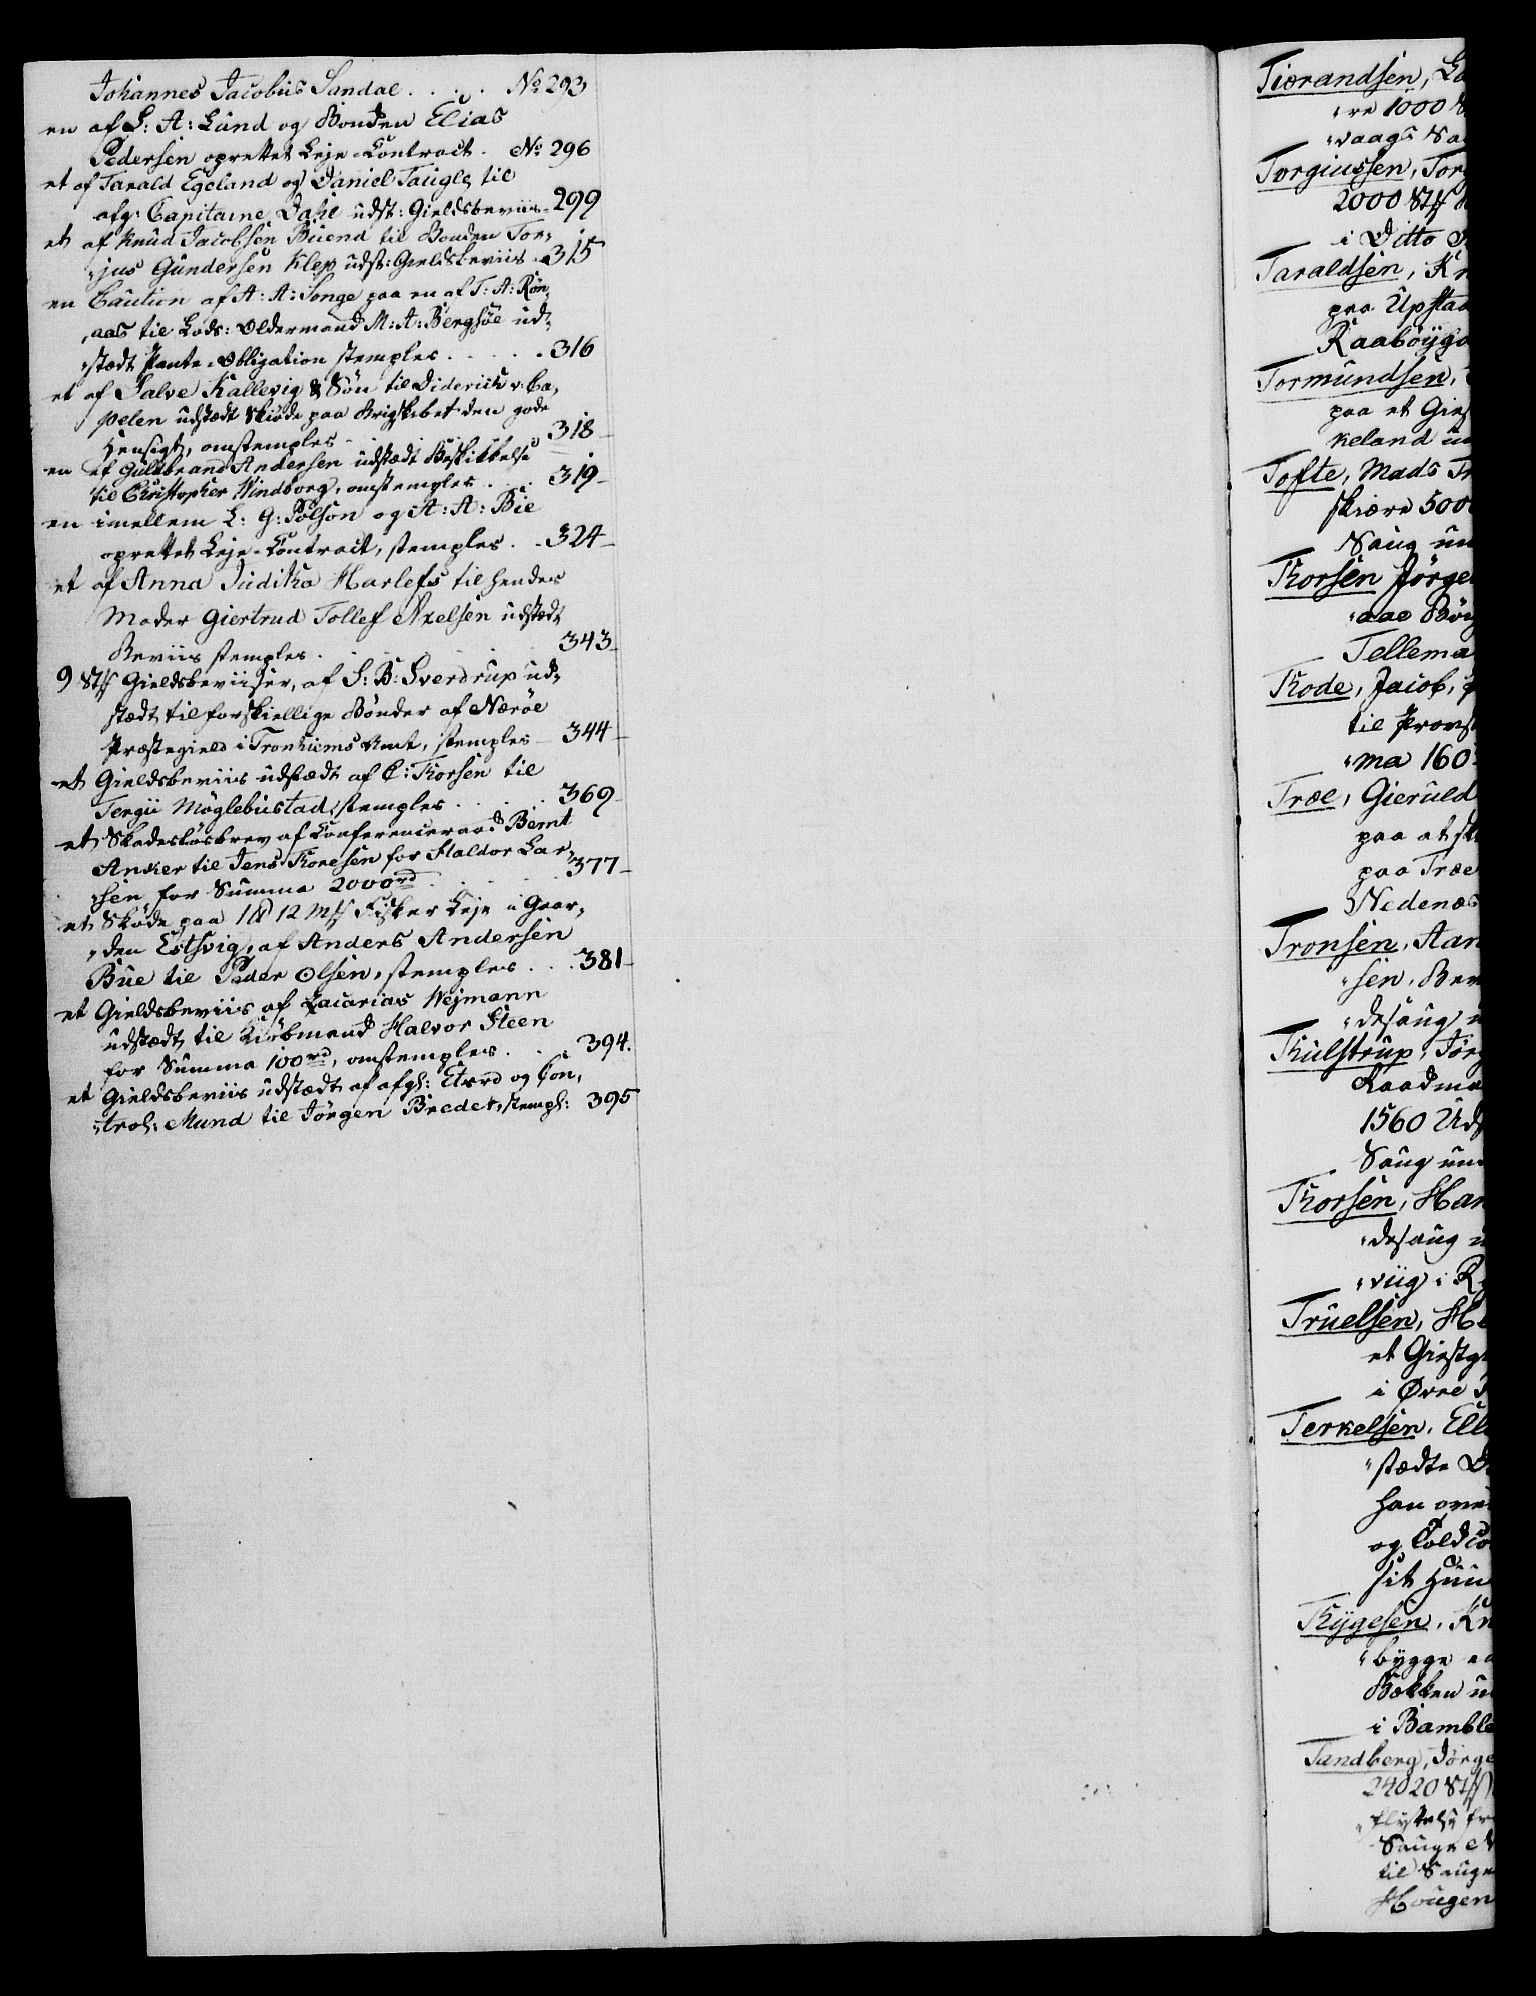 Johannes Jacobus Sandal . . . . No 293
en af L: A: Lund og Bonden Elias
Pedersen oprettet Leje-Contract . No 296
et af Tarald Egeland og Daniel Taugle til
afg: Capitaine Dahl udst: Gieldsbeviis - 299
et af Knud Jacobsen Buend til Bonden Tor-
jus Gundersen Klep udst: Gieldsbeviis - 315
en Caution af A: A: Songe paa en af T: A: Røn-
aas til Lods: Oldermand M: A: Bergsøe ud-
stædt Pante-Obligation stemples . . . . . 316
et af Salve Kallevig & Søn til Diderich v: Ca-
pelen udstædt Skiøde paa Brigskibet den gode
Hensigt, omstemples - . . . 318
en af Guldbrand Andersen udstædt Beskikkelse
til Christopher Windborg, omstemples . . . 319
en imellem L: G: Polson og A: A: Bie
oprettet Leje-Contract, stemples . - 324
et af Anna Juditha Harlefs til hendes
Moder Giertrud Tollef Axelsen udstædt
Beviis stemples . . . . 343
9 Stk Gieldsbeviiser, af S: B: Sverdrup ud-
stædt til forskiellige Bønder af Nærøe
Præstegield i Tronhiems Amt, stemples - 344
et Gieldsbeviis udstædt af C: Thorsen til
Tergii Møglebustad, stemples . . . . 369
et Skadesløsbrev af Conferenceraad Bernt
Anker til Jens Thonesen for Haldor Lar-
sen, for Summa 2000rd . . . . 377
et Skøde paa 12 Fisker Leje i Gaar-
den Estsvig, af Anders Andersen
Bue til Peder Olsen, stemples . . . 381
et Gieldsbeviis af Zacarias Wejmann
udstædt til Kiøbmand Halvor Steen
for Summa 100rd, omstemples . . . 394.
et Gieldsbeviis udstædt af afgl: og Con-
trol: Mund til Jørgen Breder, stempl: 395
Tiorandsen, La
re 1000
vaags Sa
Torgiussen, Tor
2000 Stk
i Ditto
Taraldsen, Kn
paa Upstad
Raabøyga
Tormundsen,
paa et Gies
keland un
Tofte, Mads Tr
skiære 500
Saug un
Thorsen Jørge
aae Bøy
Tellema
Thode, Jacob,
til Provst
ma 160
Træe, Gieruld
paa at sk
paa Træe
Nedenæs
Tronsen, Aan
sen, Ber
desaug
Thulstrup, Jørg
Raadma
1560 Uds
Saug un
Thorsen, Han
desaug
viig i R
Truelsen, He
et Giestg
i Øvre
Terkelsen, Ell
stædte
han over
og Toldco
sit Huu
Thygesen, Kn
bygge en
Bækken u
i Bamble
Tandberg, Jørge
24020 Stk
flyttelse fr
Sauge
til Sauge
Hougen